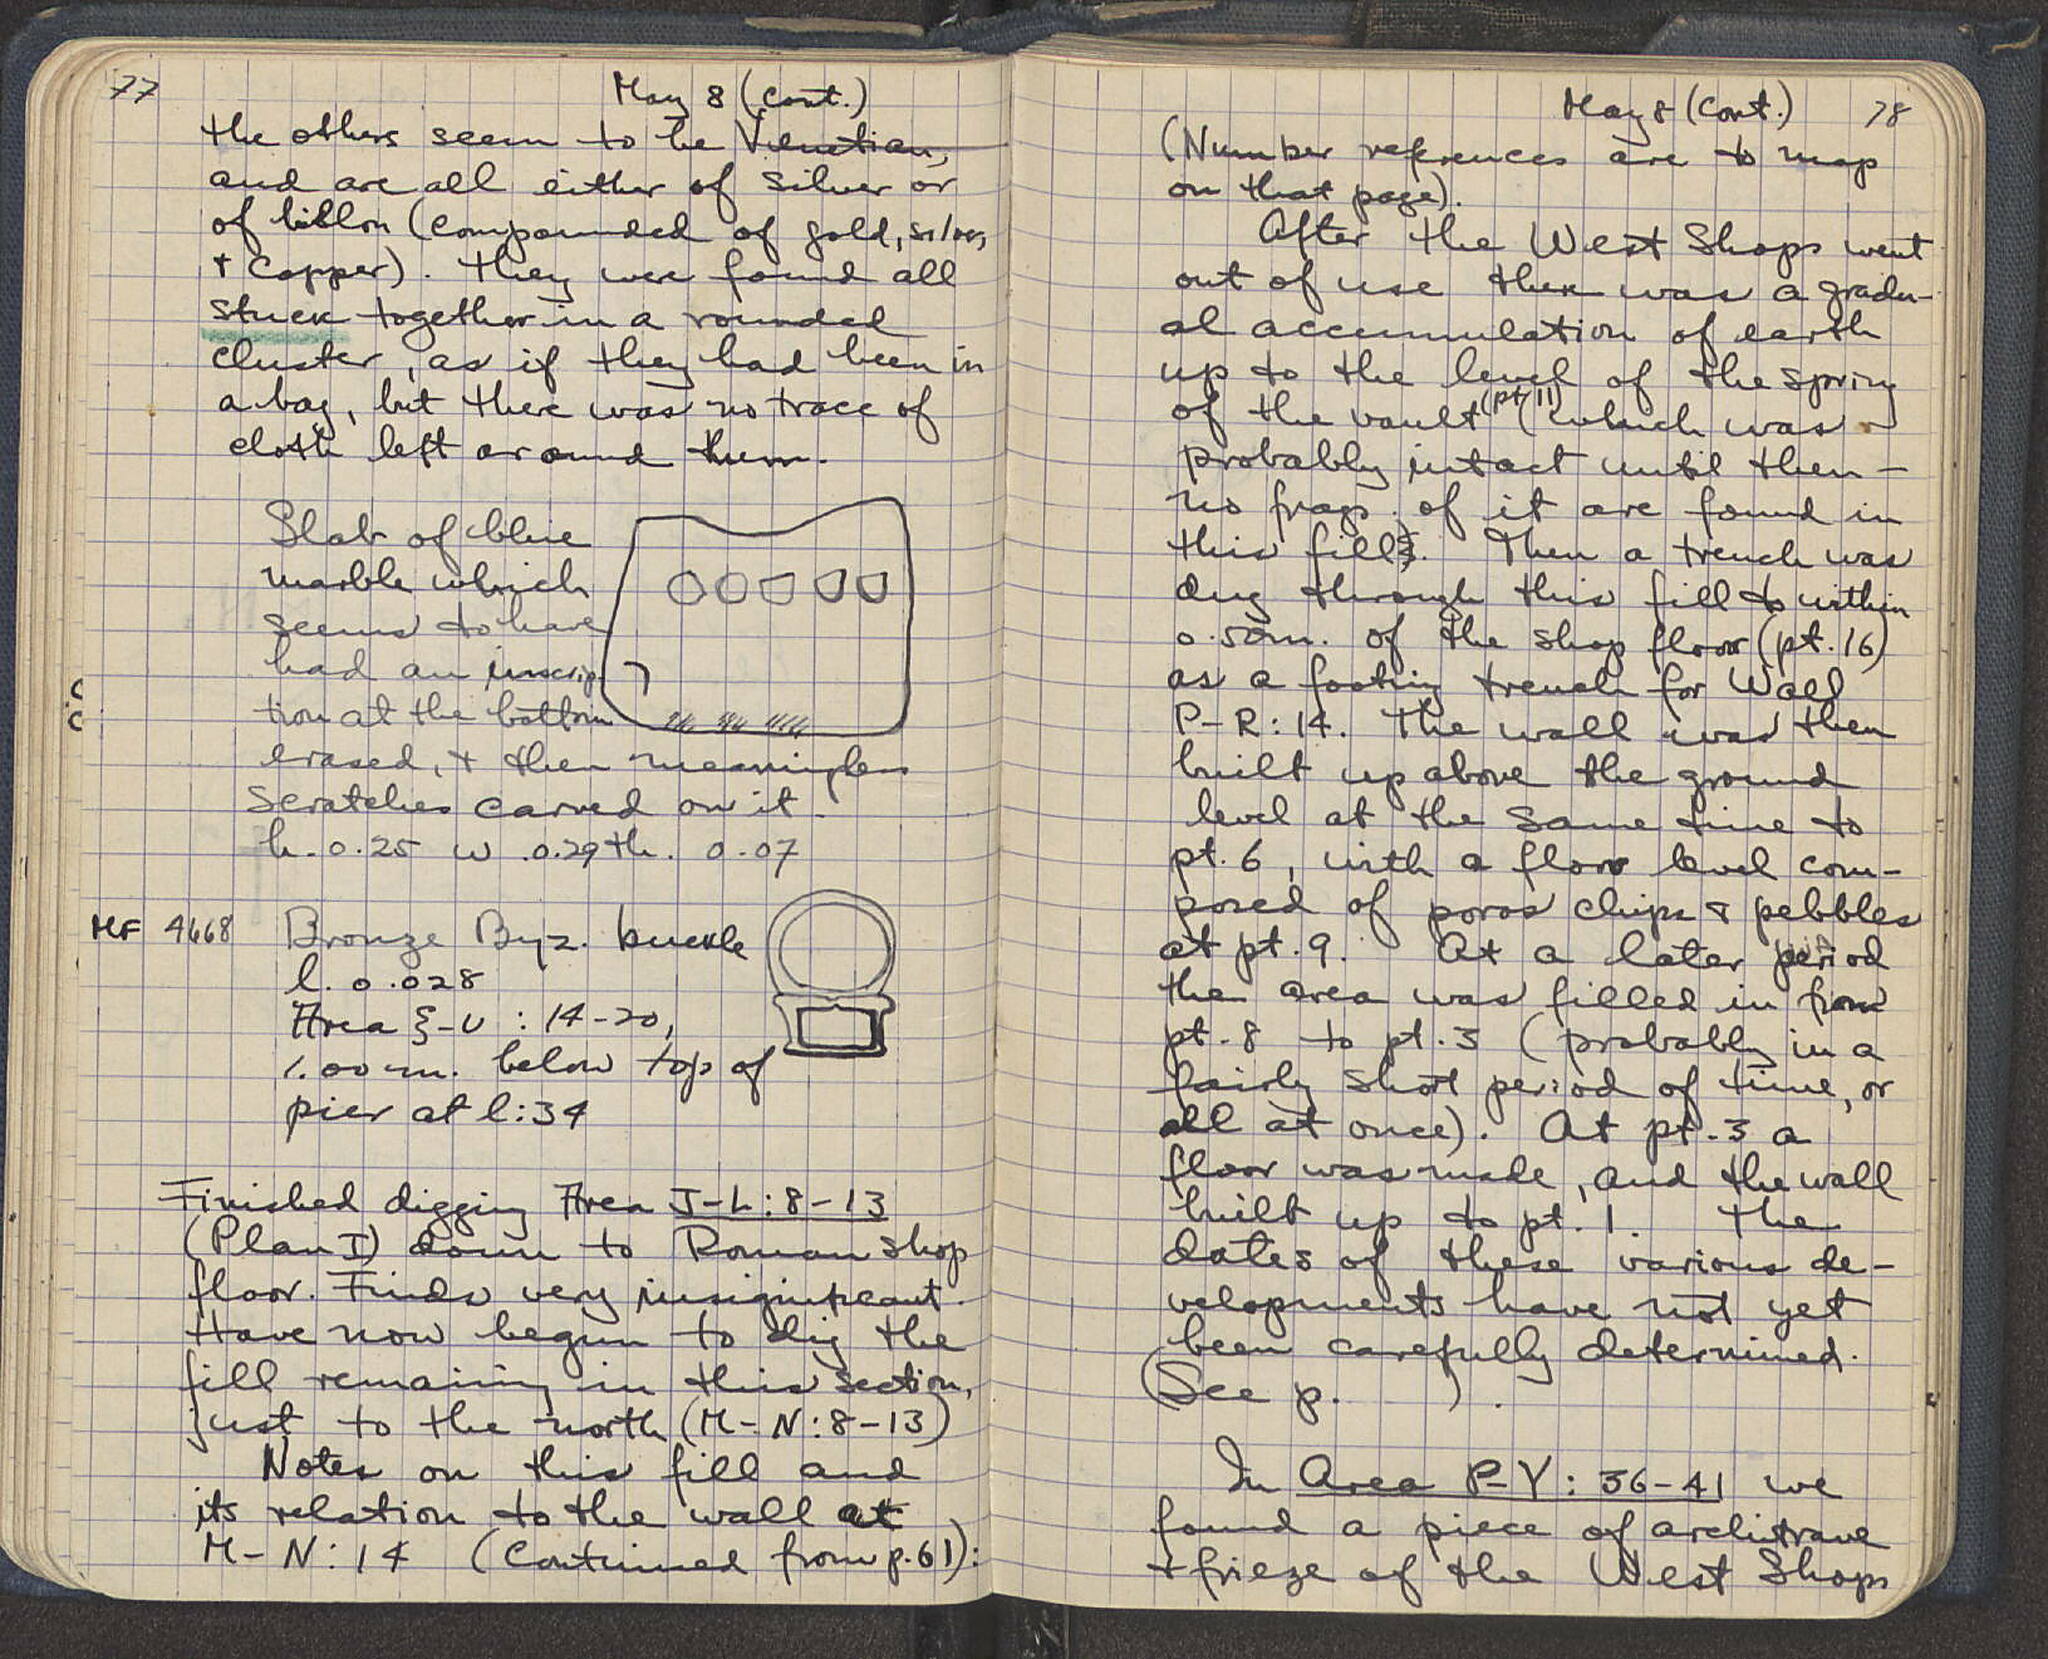 77
May 8 (cont.)
the others seem to be Venetian,
and are all either of silver or
of billon (compounded of gold, silver,
+ copper). They were found all
stuck together in a rounded
cluster, as if they had been in
a bag, but there was no trace of
cloth left around them.
Slab of blue
marble which
seems to have
had an inscrip-
tion at the bottom
erased, + then meaningless
scratches carved on it.
h. 0.25 w. 0.29 th. 0.07
MF 4668 Bronze Byz. buckle
l. 0.028
Area ξ-U : 14-20,
1.00 m. below top of
pier at l:34
Finished digging Area J-L:8-13
(Plan I) down to Roman shop
floor. Finds very insignificant.
Have now begun to dig the
fill remaining in this section,
just to the north (M-N:8-13)
Notes on this fill and
its relation to the wall at
M-N:14 (Continued from p.61):
May 8 (cont.) 78
(Number references are to map
on that page).
After the West Shops went
out of use there was a gradu-
al accumulation of earth
up to the level of the spring
of the vault (pt. 11) (which was
probably intact until then -
no frags. of it are found in
this fill). Then a trench was
dug through this fill to within
0.50m. of the shop floor (pt. 16)
as a footing trench for Wall
P-R:14. The wall was then
built up above the ground
level at the same time to
pt. 6, with a floor level com-
posed of poros chips + pebbles
at pt. 9. At a later period
the area was filled in from
pt. 8 to pt. 3 (probably in a
fairly short period of time, or
all at once). At pt. 3 a
floor was made, and the wall
built up to pt. 1. The
dates of these various de-
velopments have not yet
been carefully determined.
(See p. ).
In Area P-Y: 36-41 we
found a piece of architrave
+ frieze of the West Shops